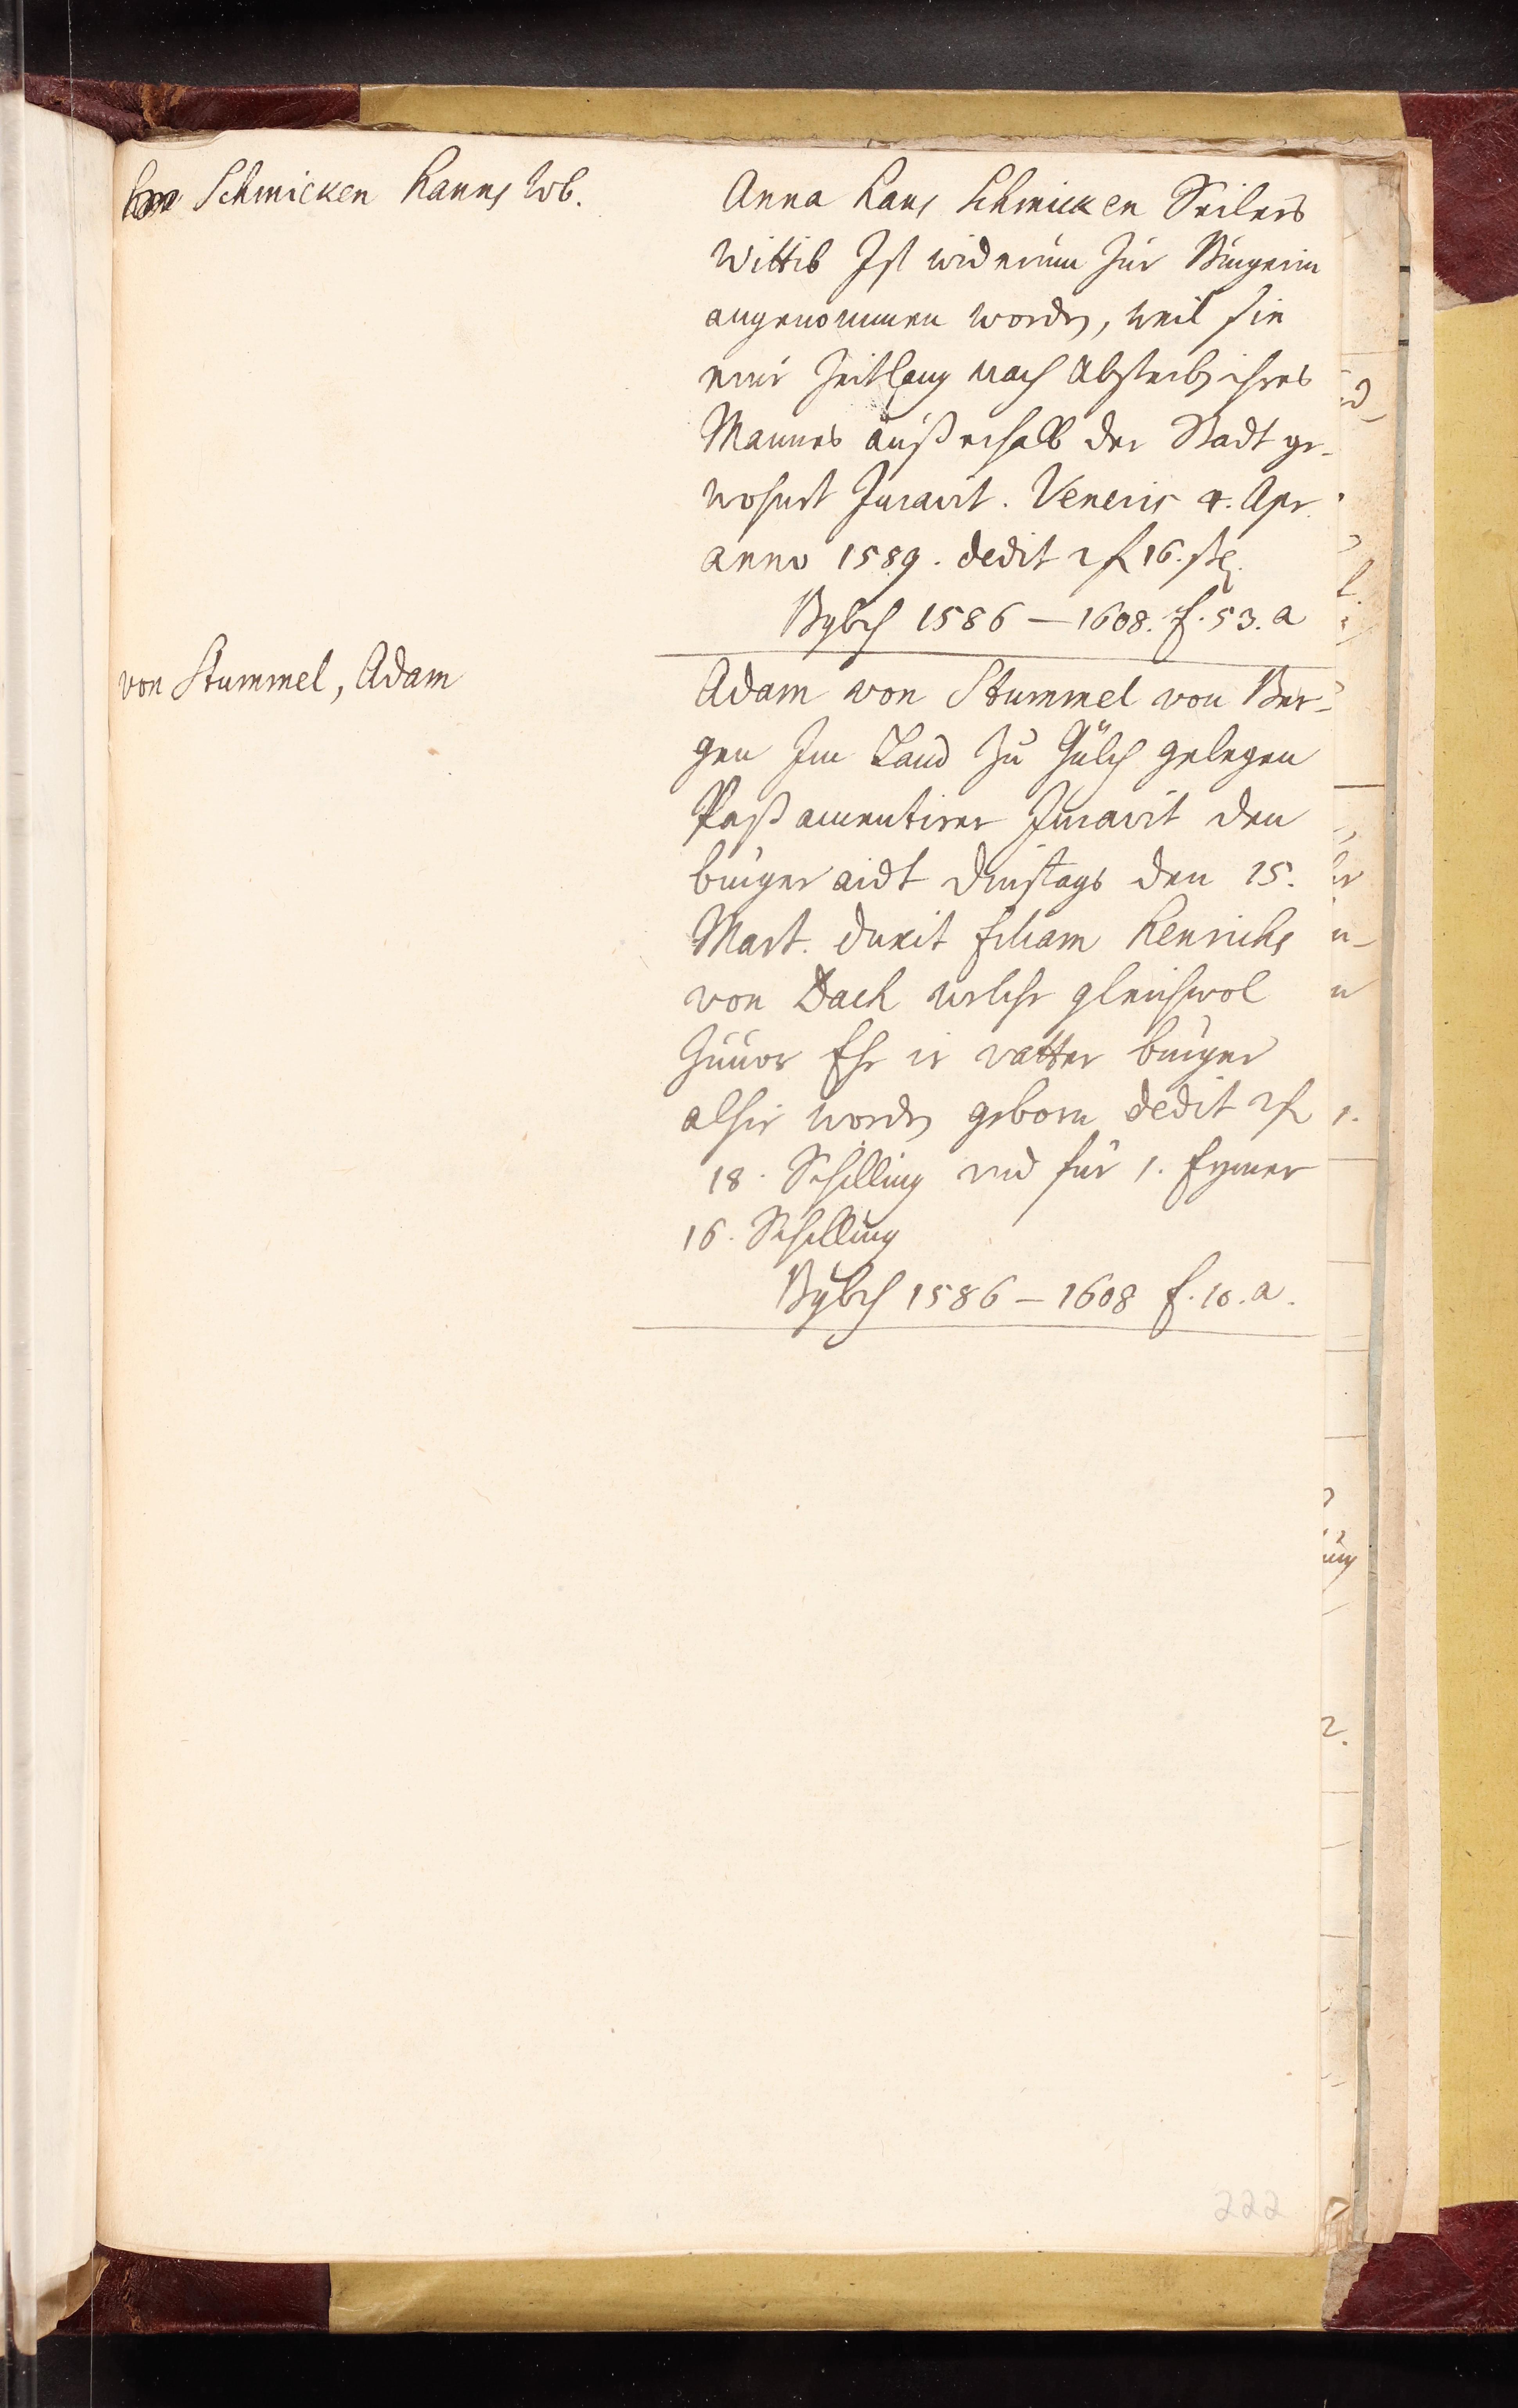 Schmicken Hanns Wb.
Anna Hans Schmicken Seilers
Wittib Ist widerum zur Bürgerin
angenommen worden, weil sie
eine Zeitlang nach Absterben ihres
Mannes außerhalb der Stadt ge-
wohnt Juravit. Veneris 4. Apr.
anno 1589. dedit 2 f 16. ß
Bgbch 1586 – 1608. f. 53. a
von Stummel, Adam
Adam von Stummel von Ber-
gen Im Land zu Gülch gelegen
Paßamentirer Juravit den
burger aidt Dinstags den 15.
Mart. duxit filiam Henrichs
von Dach welche gleichwol
zuuor Ehe ir vatter burger
alhie worden geborn dedit 2 f
18. Schilling vnd für 1. Eymer
16. Schilling
Bgbch 1586 – 1608 f. 10. a.
222